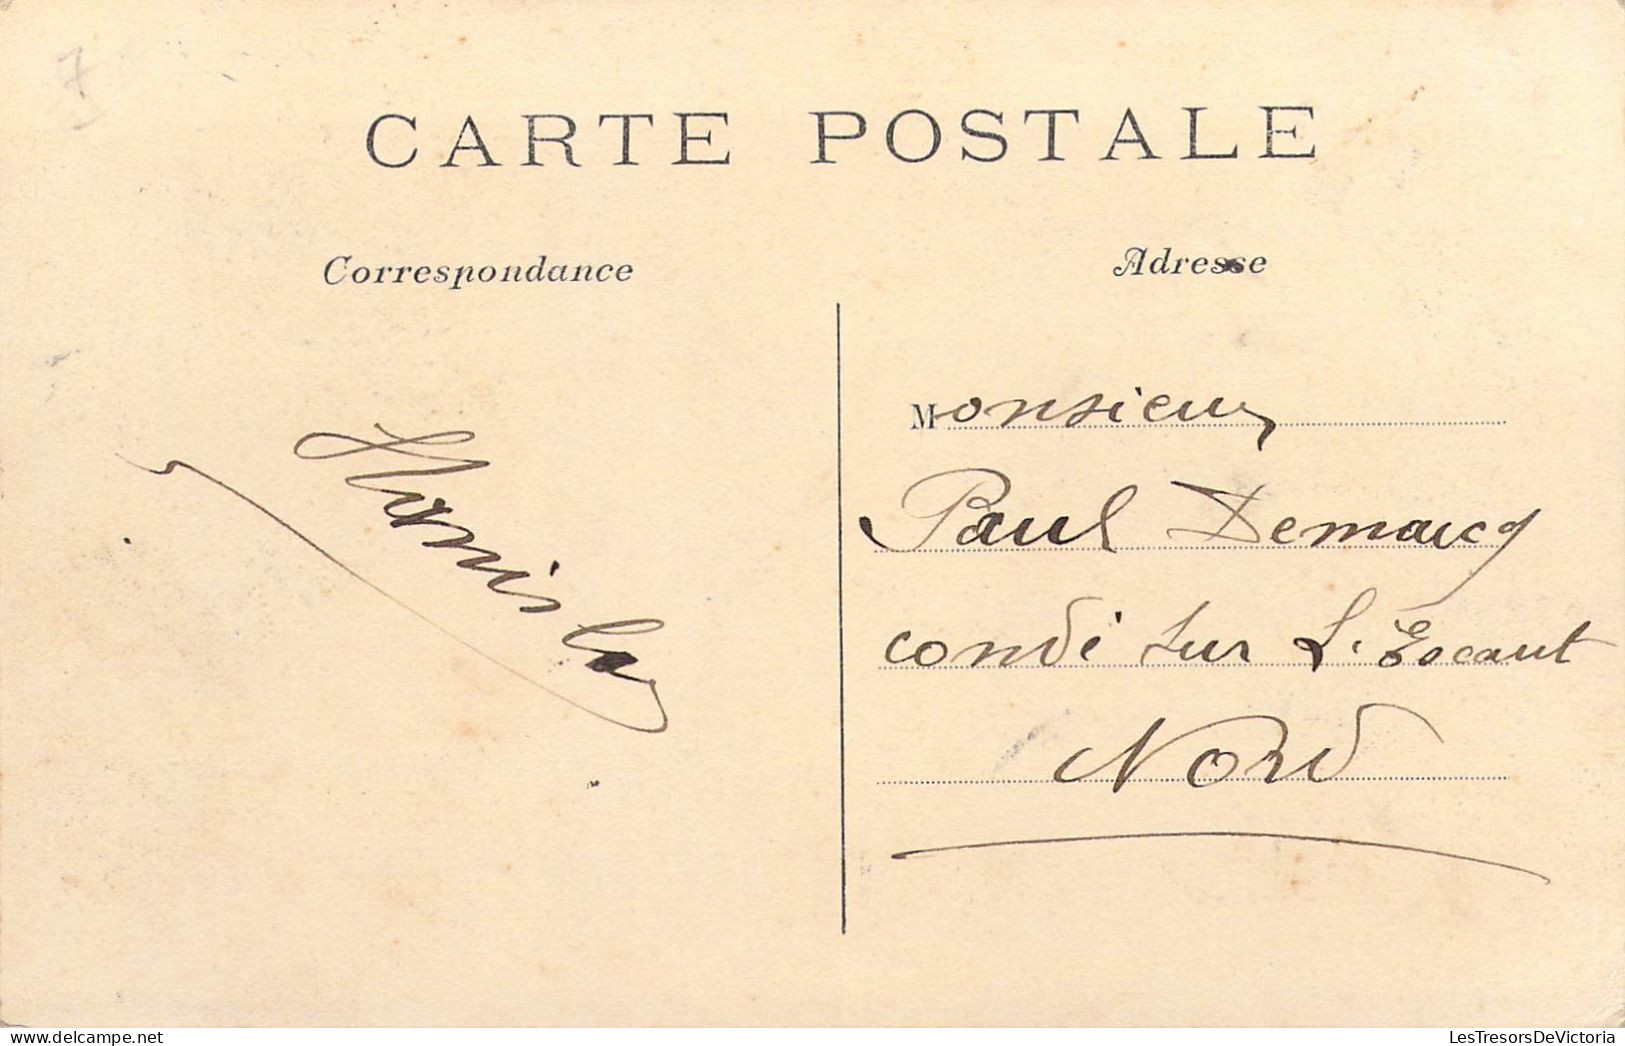 7
CARTE POSTALE
Correspondance
Adresse
Monsieur
Paul Demarcq
Condé sur L'Escaut
Nord
© DELCAMPE
LesTresorsDeVictoria